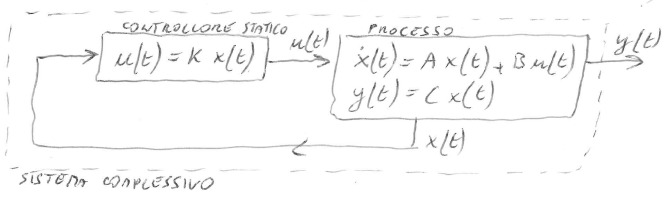 CONTROLLORE STATICO
u(t) = K x(t)
u(t)
PROCESSO
ẋ(t) = A x(t) + B u(t)
y(t) = C x(t)
y(t)
x(t)
SISTEMA COMPLESSIVO